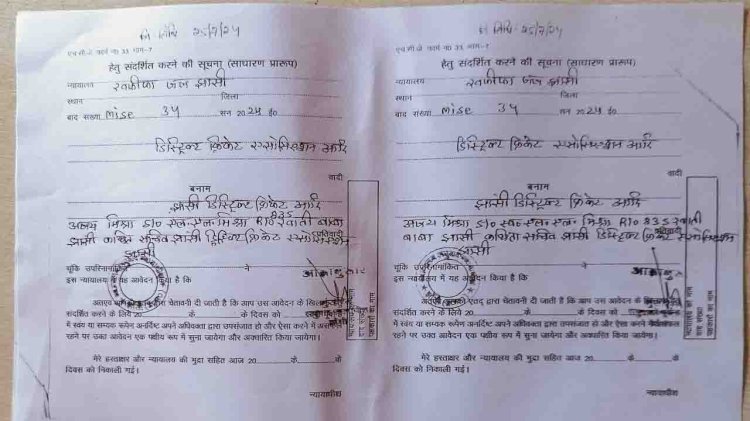 नि तिथि 25/7/24
एच.सी.जे. फार्म नं0 33, भाग-7
हेतु संदर्शित करने की सूचना (साधारण प्रारूप)
न्यायालय खफीफा जज झांसी
स्थान जिला
वाद संख्या mise 34 सन् 2024 ई0
डिस्ट्रिक्ट क्रिकेट एसोसिएशन आदि
वादी
बनाम
झांसी डिस्ट्रिक्ट क्रिकेट आदि
प्रतिवादी
अजय मिश्रा S/O एल.एल. मिश्रा R/O 835 बाबा
झांसी कथित सचिव झांसी डिस्ट्रिक्ट क्रिकेट एसोसिएशन
झांसी
चूंकि उपरिनामांकित ने
इस न्यायालय में यह आवेदन किया है कि
अतएव आपको एतद् द्वारा चेतावनी दी जाती है कि आप उस आवेदन के खिलाफ
संदर्शित करने के लिये 20 के के दिवस को
में स्वयं या सम्यक रूपेण अनर्दिष्ट अपने अधिवक्ता द्वारा उपसंजात हो और ऐसा करने में असफल
रहने पर उक्त आवेदन एक पक्षीय रूप में सुना जायेगा और अवधारित किया जायेगा।
मेरे हस्ताक्षर और न्यायालय की मुद्रा सहित आज 20 के के
दिवस को निकाली गई।
न्यायाधीश
वाद संख्या
पक्षकारों का नाम
नि तिथि 25/7/24
एच.सी.जे. फार्म नं0 33, भाग-7
हेतु संदर्शित करने की सूचना (साधारण प्रारूप)
न्यायालय खफीफा जज झांसी
स्थान जिला
वाद संख्या mise 34 सन् 2024 ई0
डिस्ट्रिक्ट क्रिकेट एसोसिएशन आदि
वादी
बनाम
झांसी डिस्ट्रिक्ट क्रिकेट आदि
प्रतिवादी
अजय मिश्रा S/O स्व. एल.एल. मिश्रा R/O 835
बाबा झांसी कथित सचिव झांसी डिस्ट्रिक्ट क्रिकेट एसोसिएशन
झांसी
चूंकि उपरिनामांकित ने
इस न्यायालय में यह आवेदन किया है कि
अतएव आपको एतद् द्वारा चेतावनी दी जाती है कि आप उस आवेदन के खिलाफ
संदर्शित करने के लिये 20 के के दिवस को
में स्वयं या सम्यक रूपेण अनर्दिष्ट अपने अधिवक्ता द्वारा उपसंजात हो और ऐसा करने में
रहने पर उक्त आवेदन एक पक्षीय रूप में सुना जायेगा और अवधारित किया जायेगा।
मेरे हस्ताक्षर और न्यायालय की मुद्रा सहित आज 20 के के
दिवस को निकाली गई।
न्यायाधीश
वाद संख्या
पक्षकारों का नाम